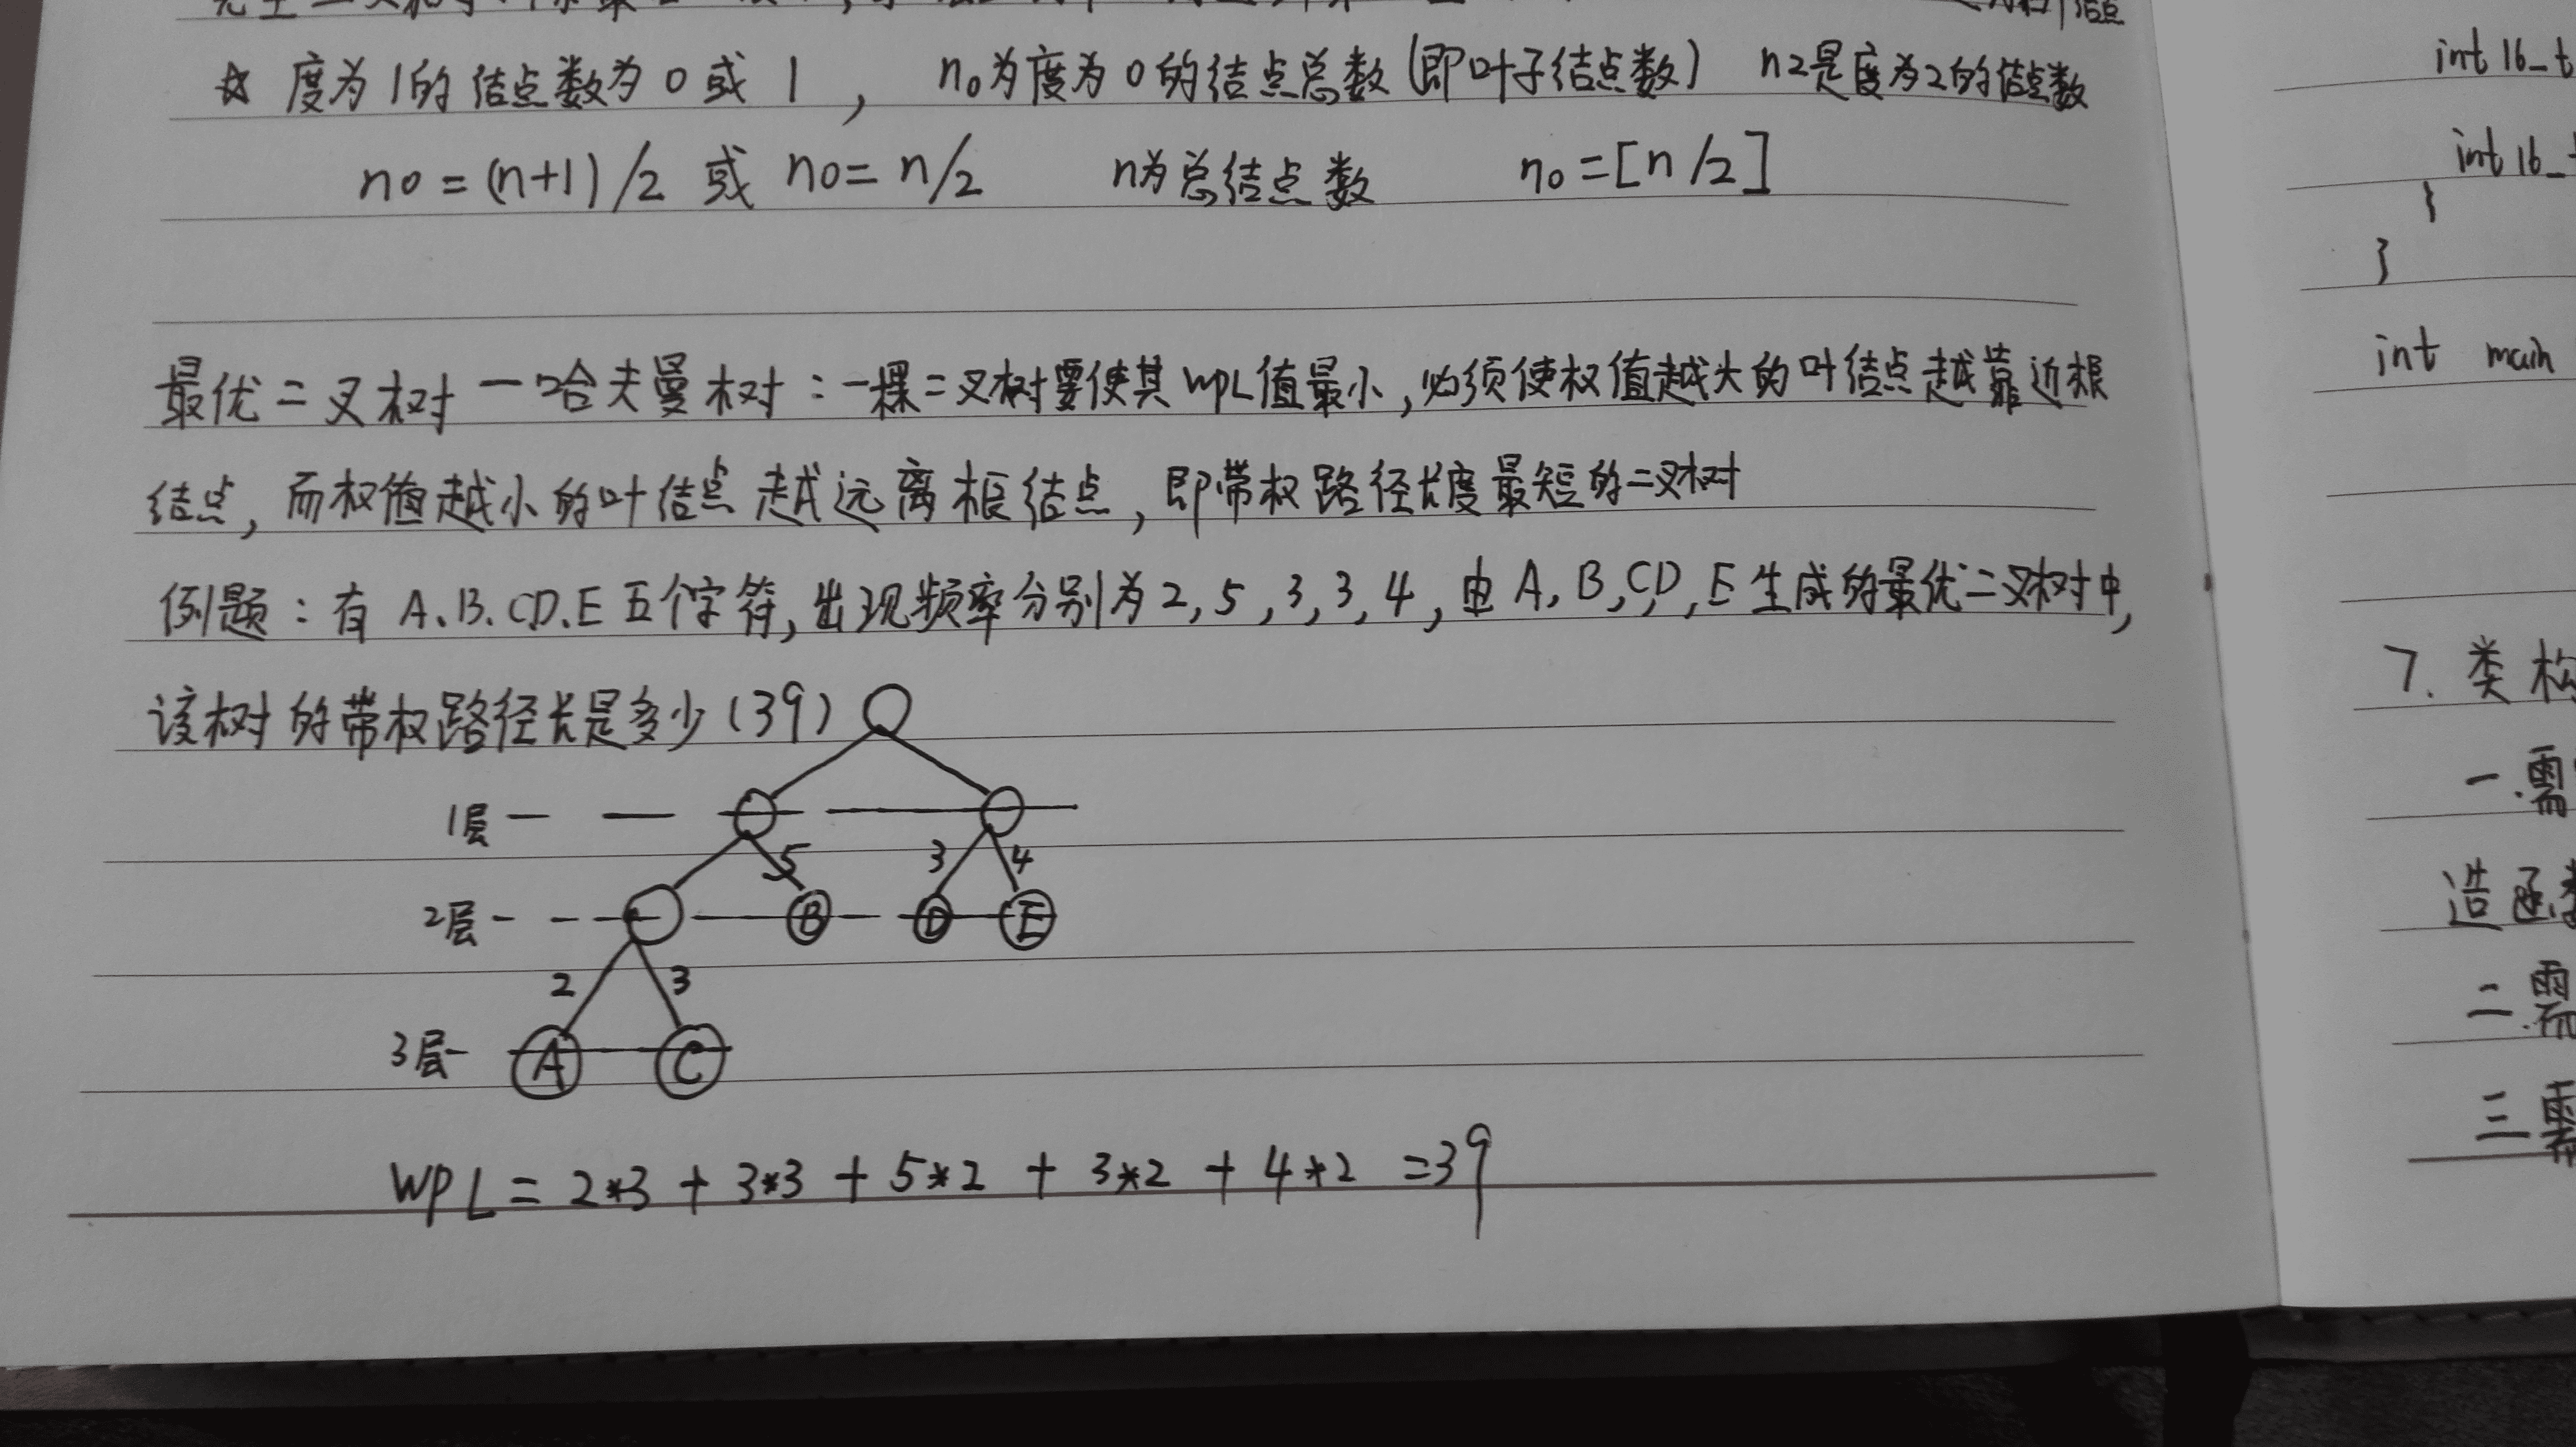 ☆ 度为1的结点数为0或1， n₀为度为0的结点总数(即叶子结点数) n2是度为2的结点数
n0=(n+1)/2 或 n0=n/2 n为总结点数 n₀=[n/2]
最优二叉树一哈夫曼树：一棵二叉树要使其WPL值最小,必须使权值越大的叶结点越靠近根
结点,而权值越小的叶结点越远离根结点,即带权路径长度最短的二叉树
例题：有 A、B、C、D、E五个字符,出现频率分别为2,5,3,3,4,由A,B,C,D,E生成的最优二叉树中,
该树的带权路径长是多少(39)
1层
5 3 4
2层 B D E
2 3
3层 A C
WPL=2*3+3*3+5*2+3*2+4*2=39
int 16_t
int 16_t
}
}
int main
7. 类构
一.需
造函数
二.需
三需